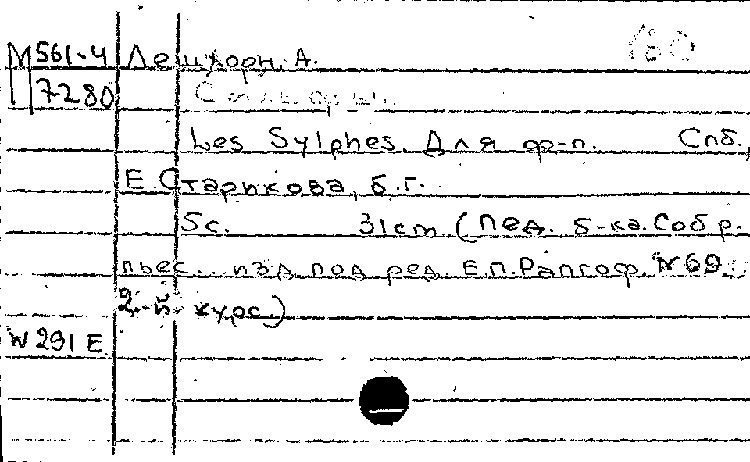 160
М 561-4 Лешгорн, А.
7280 Сильфы.
Les Sylphes. Для ф-п. Спб.,
Е Старикова, б.г.
5с. 31cm (Пед. б-ка. Собр.
пьес... изд. под ред. Е.П. Рапгоф. №69.
2-й курс.)
W 291 Е